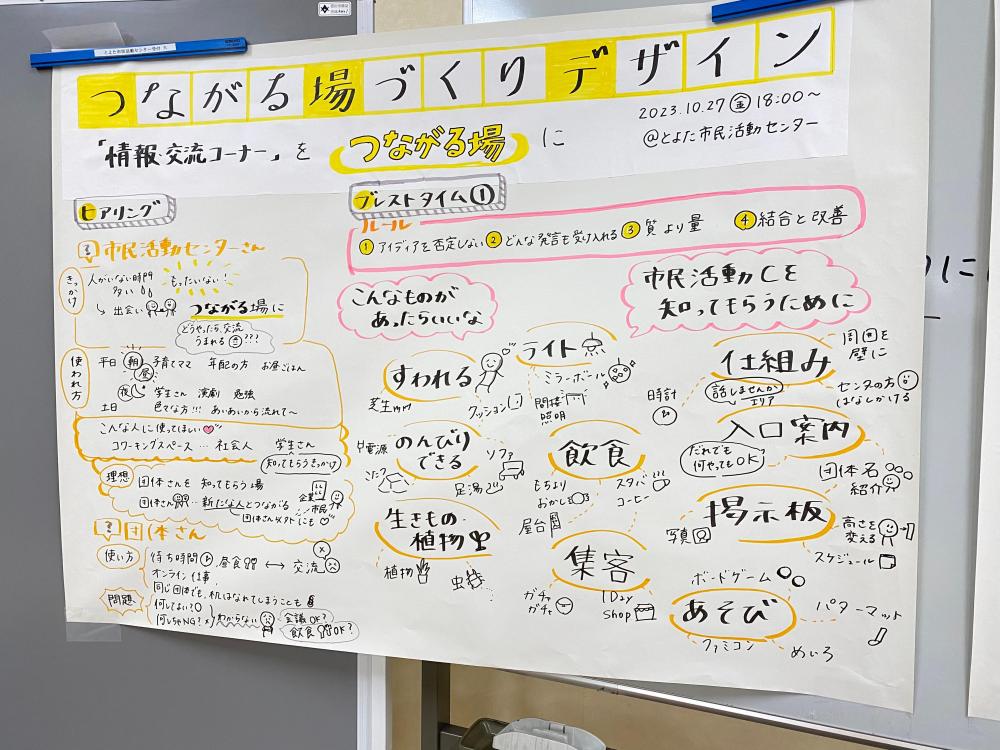 つながる場づくりデザイン
「情報・交流コーナー」を つながる場 に
2023.10.27 金 18:00〜
@とよた市民活動センター
ヒアリング
市民活動センターさん
きっかけ
人がいない時間
多い
もったいない!
↳ 出会い
つながる場に
どうやったら、交流
うまれる???
使われ方
平日 朝 子育てママ 年配の方 お昼ごはん
昼
夜 学生さん 演劇 勉強
土日 色々な方!!! あいあいから流れて〜
こんな人に使ってほしい
コワーキングスペース … 社会人 学生さん
知ってもらうきっかけ
理想
団体さんを 知ってもらう場
団体さん … 新たな人とつながる
企業
市民
団体さん以外にも
団体さん
使い方
待ち時間 昼食 ↔ 交流
オンライン仕事
同じ団体でも、机はなれてしまうことも
問題
何してよい?○
何しちゃNG?× わからない
会議OK?
飲食OK?
ブレストタイム①
ルール
① アイディアを否定しない ② どんな発言も受け入れる ③ 質より量 ④ 結合と改善
こんなものが
あったらいいな
すわれる
芝生
クッション
ライト
ミラーボール
間接
照明
のんびり
できる
電源
こたつ
ソファ
足湯
飲食
もちより
おかし
スタバ
コーヒー
屋台
生きもの・
植物
植物
虫
集客
ガチャ
ガチャ
1Day
Shop
市民活動Cを
知ってもらうために
仕組み
周囲を
壁に
時計
話しませんか
エリア
センタの方
はなしかける
入口案内
だれでも
何やってもOK
団体名
紹介
掲示板
写真
高さを
変える
スケジュール
あそび
ボードゲーム
パターマット
ファミコン
めいろ